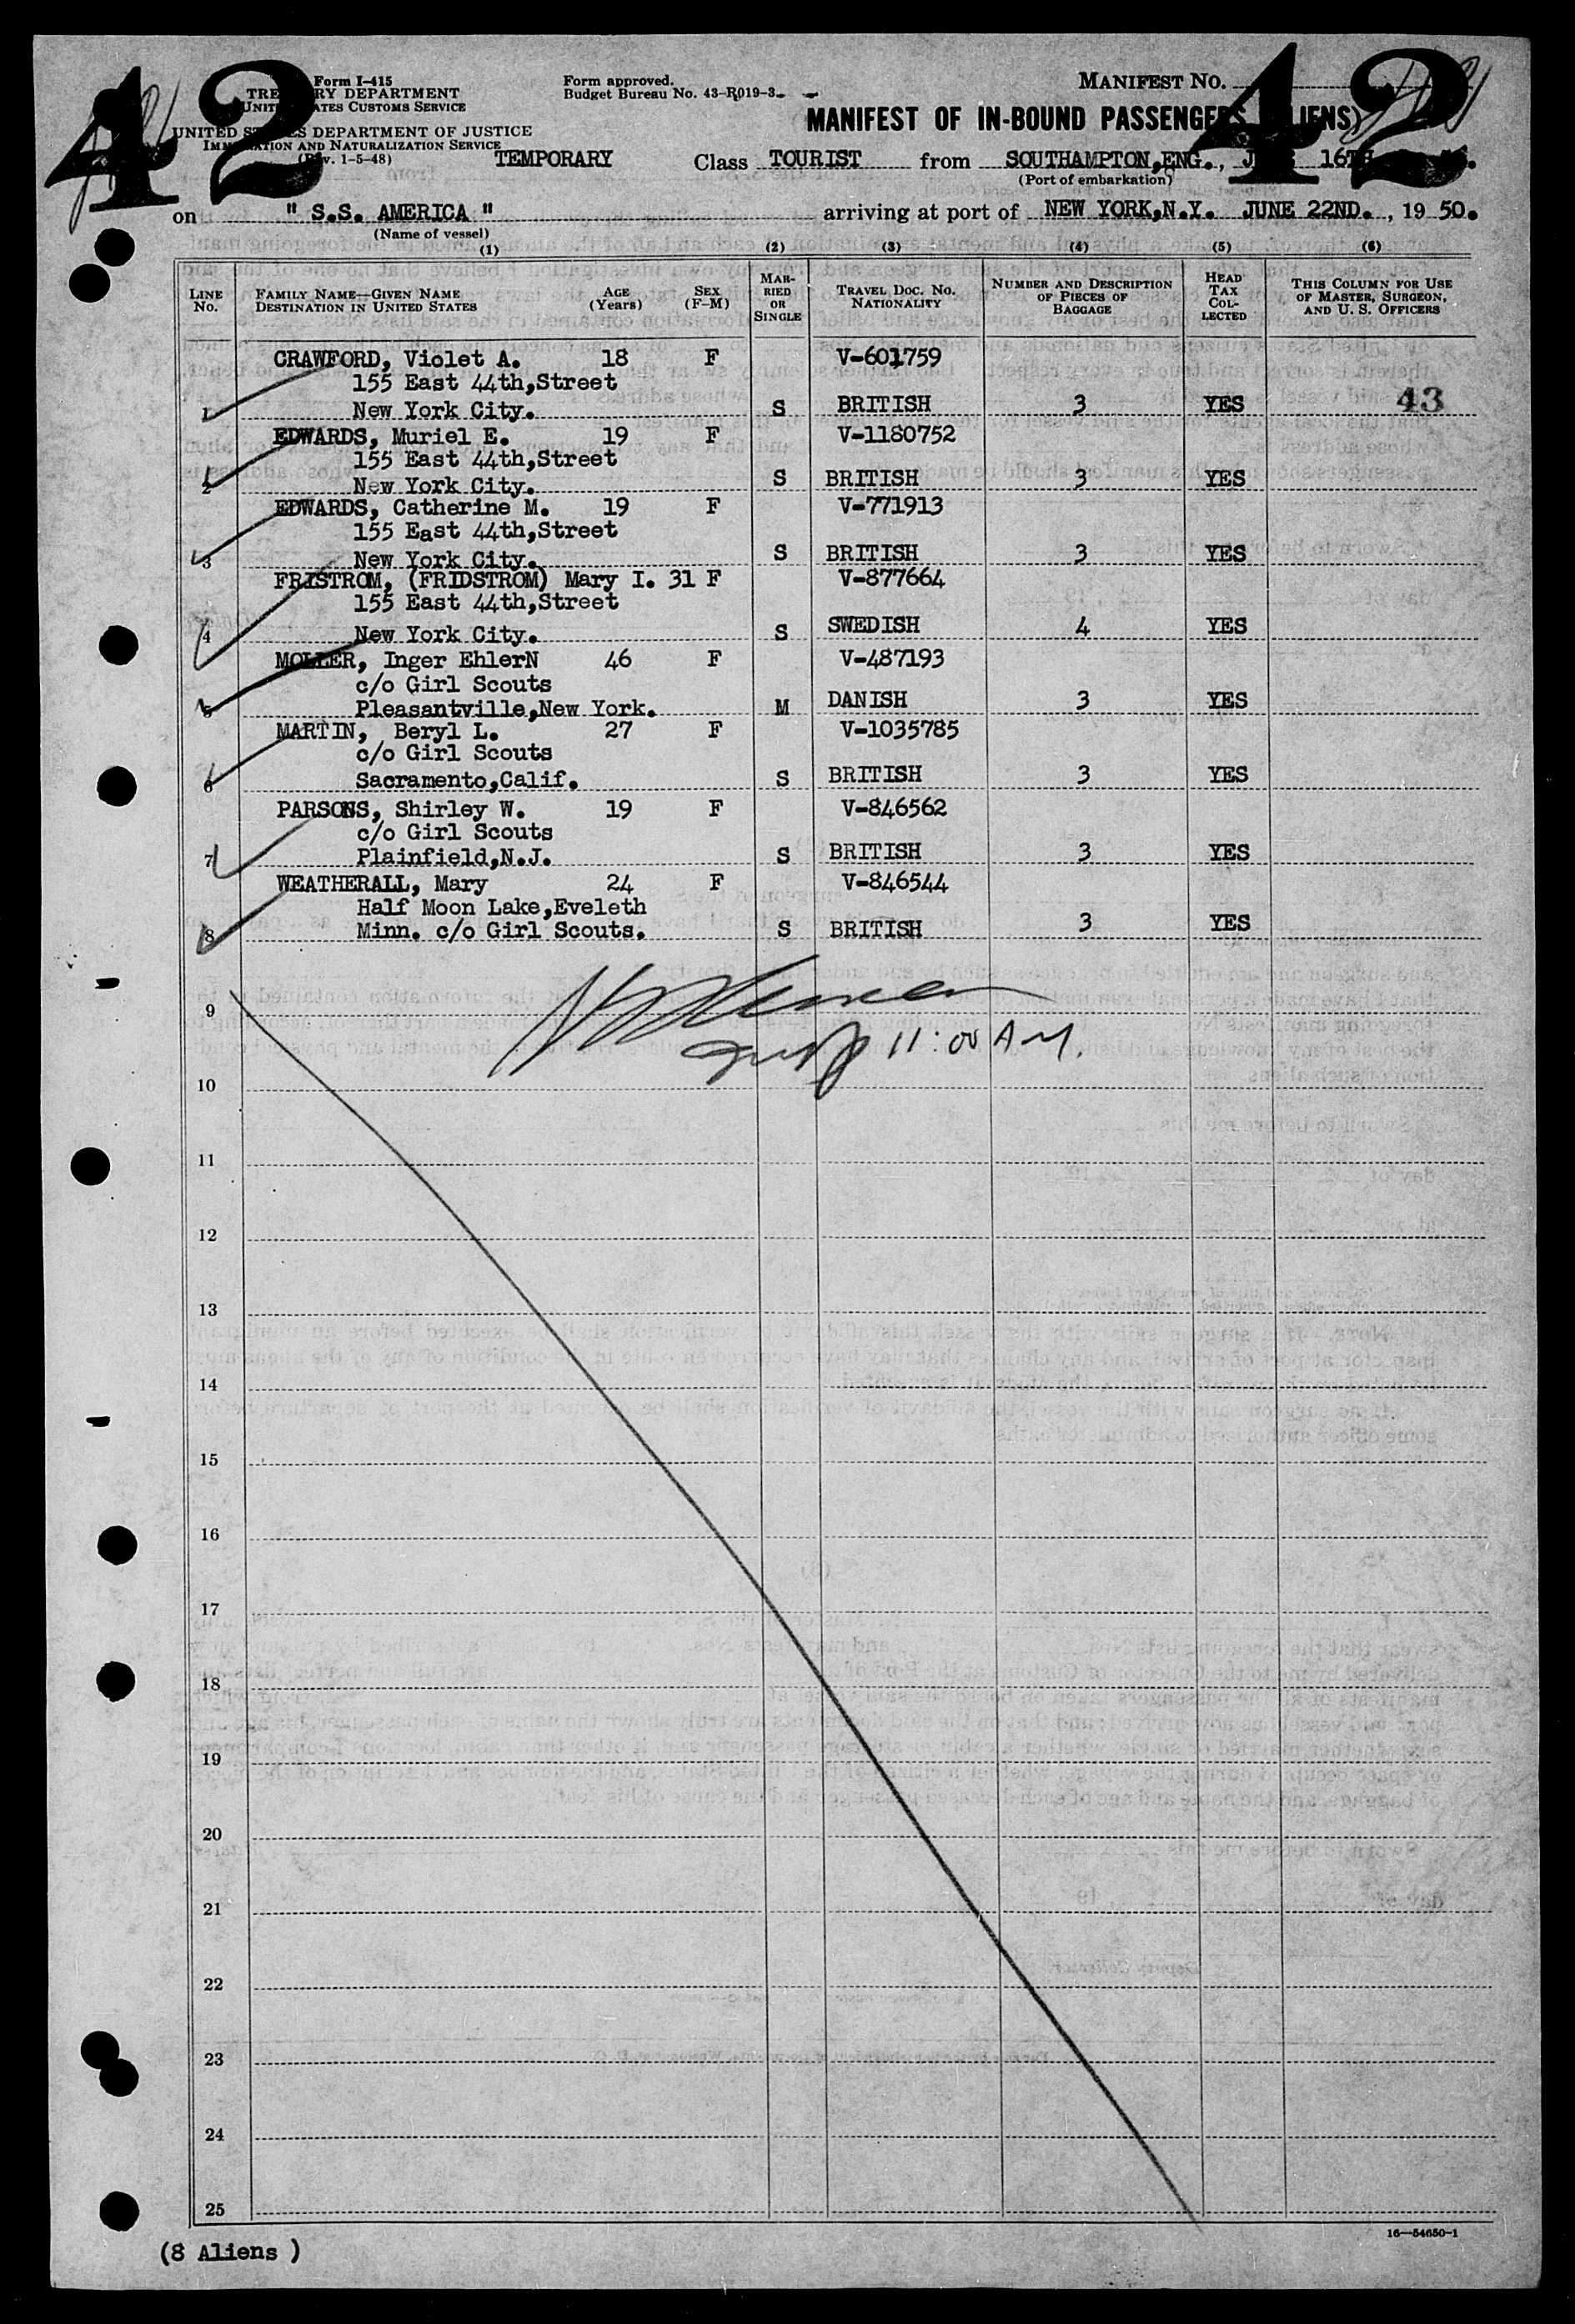 42
42
Form I-415
TREASURY DEPARTMENT
UNITED STATES CUSTOMS SERVICE
Form approved.
Budget Bureau No. 43-R019-3.
MANIFEST NO.
UNITED STATES DEPARTMENT OF JUSTICE
IMMIGRATION AND NATURALIZATION SERVICE
(Rev. 1-5-48)
MANIFEST OF IN-BOUND PASSENGERS (ALIENS)
TEMPORARY Class TOURIST from SOUTHAMPTON,ENG., 16TH
(Port of embarkation)
on " S.S. AMERICA " arriving at port of NEW YORK,N.Y. JUNE 22ND. , 19 50.
(Name of vessel)
(1) (2) (3) (4) (5) (6)
LINE No. FAMILY NAME—GIVEN NAME DESTINATION IN UNITED STATES AGE (Years) SEX (F-M) MARRIED OR SINGLE TRAVEL DOC. NO. NATIONALITY NUMBER AND DESCRIPTION OF PIECES OF BAGGAGE HEAD TAX COLLECTED THIS COLUMN FOR USE OF MASTER, SURGEON, AND U. S. OFFICERS
CRAWFORD, Violet A. 18 F V-601759
155 East 44th,Street
1 New York City. S BRITISH 3 YES 43
EDWARDS, Muriel E. 19 F V-1180752
155 East 44th,Street
2 New York City. S BRITISH 3 YES
EDWARDS, Catherine M. 19 F V-771913
155 East 44th,Street
3 New York City. S BRITISH 3 YES
FRISTROM, (FRIDSTROM) Mary I. 31 F V-877664
155 East 44th,Street
4 New York City. S SWEDISH 4 YES
MOLLER, Inger EhlerN 46 F V-487193
c/o Girl Scouts
5 Pleasantville,New York. M DANISH 3 YES
MARTIN, Beryl L. 27 F V-1035785
c/o Girl Scouts
6 Sacramento,Calif. S BRITISH 3 YES
PARSONS, Shirley W. 19 F V-846562
c/o Girl Scouts
7 Plainfield,N.J. S BRITISH 3 YES
WEATHERALL, Mary 24 F V-846544
Half Moon Lake,Eveleth
8 Minn. c/o Girl Scouts. S BRITISH 3 YES
9
11:00 AM.
10
11
12
13
14
15
16
17
18
19
20
21
22
23
24
25
16—54650-1
(8 Aliens )